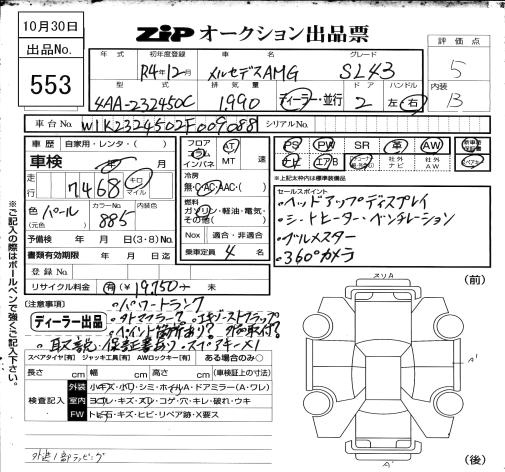 10月30日
出品No.
553
ZiP オークション出品票
評価点
5
内装
B
年式 初年度登録 車名 グレード
R4年12月 メルセデスAMG SL43
型式 排気量 ドア ハンドル
4AA-232450C 1990 ディーラー・並行 2 左・右
車台No. W1K2324502F009088 シリアルNo.
車歴 自家用・レンタ・( )
車検 年 月
走行 7468 キロ マイル
色 (元色) パール カラーNo. 885 内装色
予備検 年 月 日(3・8)No.
書類有効期限 年 月 日迄
登録No.
リサイクル料金 有 ¥19,750 未
フロア コラム インパネ AT MT 速
冷房 無・C・AC・AAC・( )
燃料 ガソリン・軽油・電気・その他( )
Nox 適合・非適合
乗車定員 4 名
PS PW SR 革 AW
ナビ エアB 社外ナビ 社外AW
※上記太枠内は標準装備品
セールスポイント
・ヘッドアップディスプレイ
・シートヒーター・ベンチレーション
・ブルメスター
・360°カメラ
(注意事項)
・パワートランク
ディーラー出品
・取説・保証書あり・スペアキー×1
スペアタイヤ[有] ジャッキ工具[有] AWロックキー[有] ある場合のみ○
長さ cm 幅 cm 高さ cm (車検証上の寸法)
検査記入
外装 小キズ・小ワ・シミ・ホイルA・ドアミラー(A・ワレ)
室内 ヨゴレ・キズ・スレ・コゲ・穴・キレ・破れ・ウキ
FW トビ石・キズ・ヒビ・リペア跡・X要ス
外装1部ラッピング
※ご記入の際はボールペンで強くご記入下さい。
(前)
スリA
A'
A'
(後)